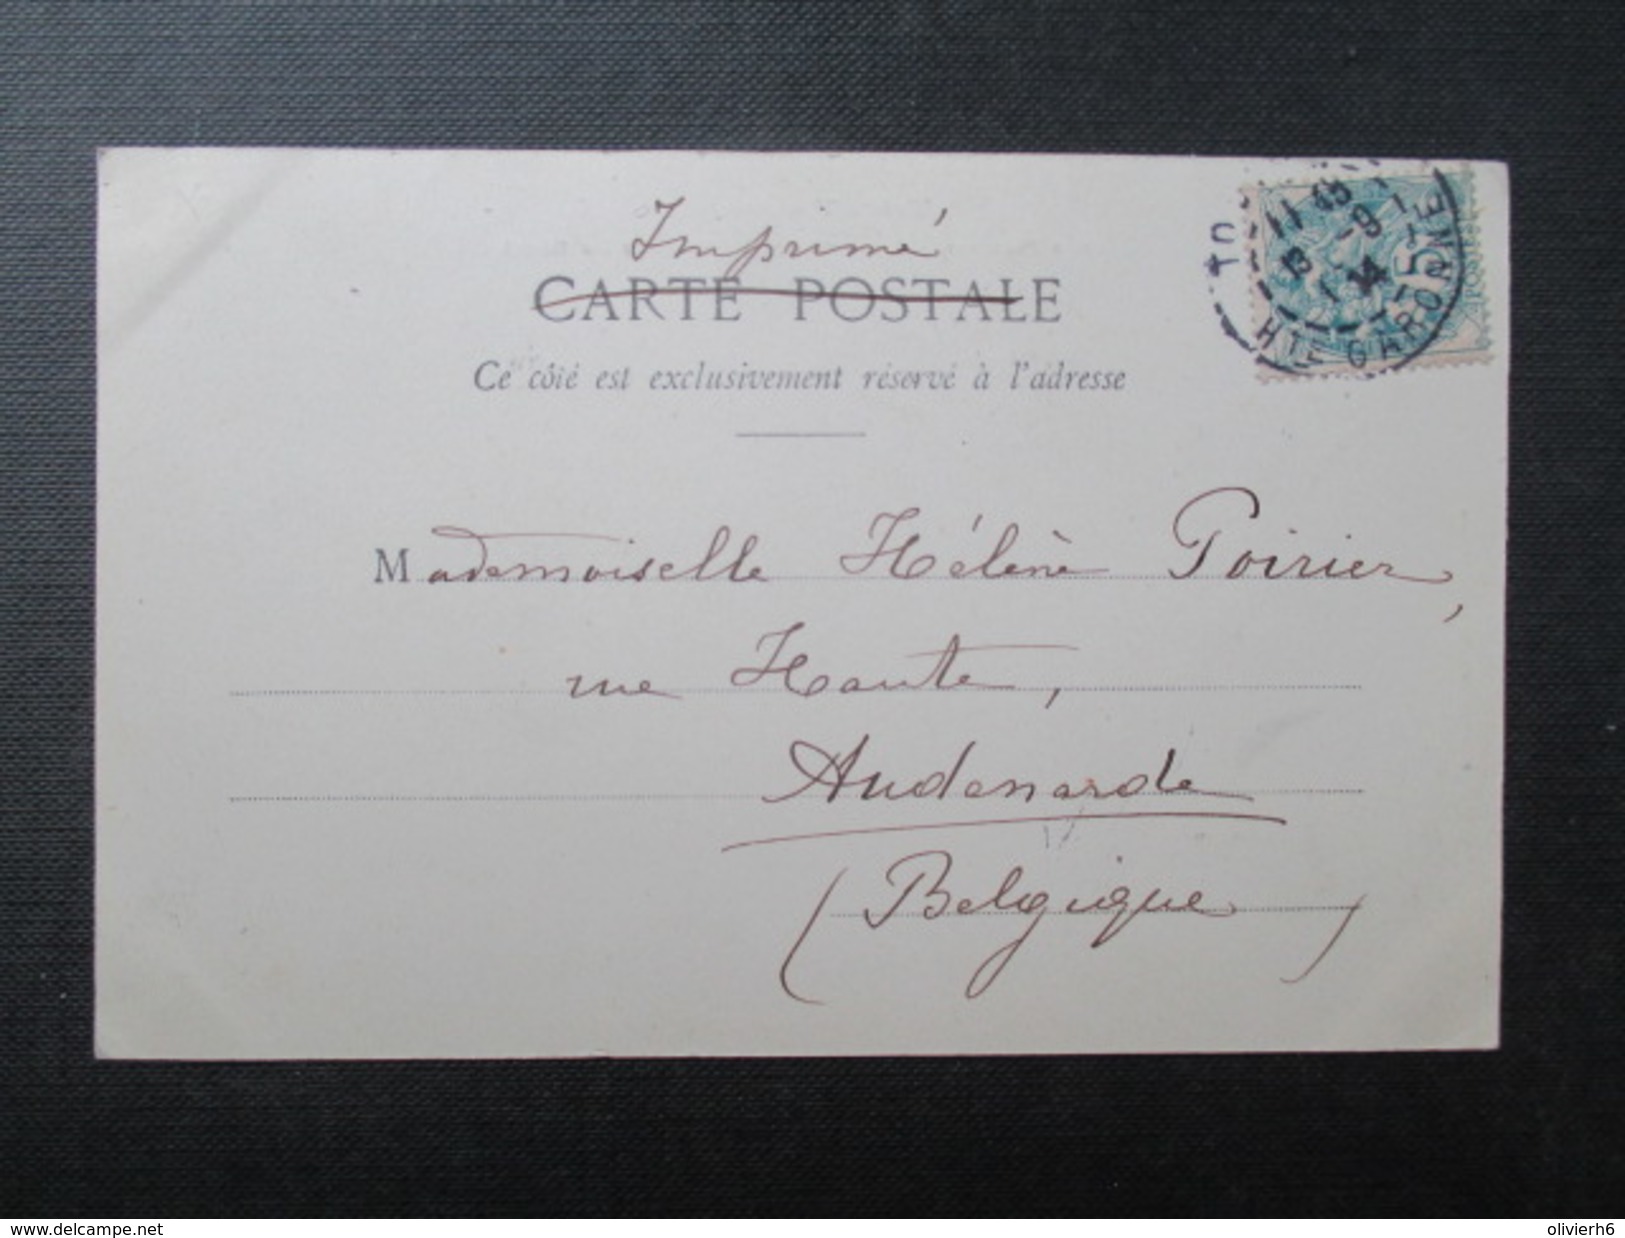 Imprimé
CARTE POSTALE
Ce côté est exclusivement réservé à l'adresse
HTE GARONNE
5
Mademoiselle Hélène Poirier,
rue Haute,
Audenarde
(Belgique)
www.delcampe.net
olivierh6